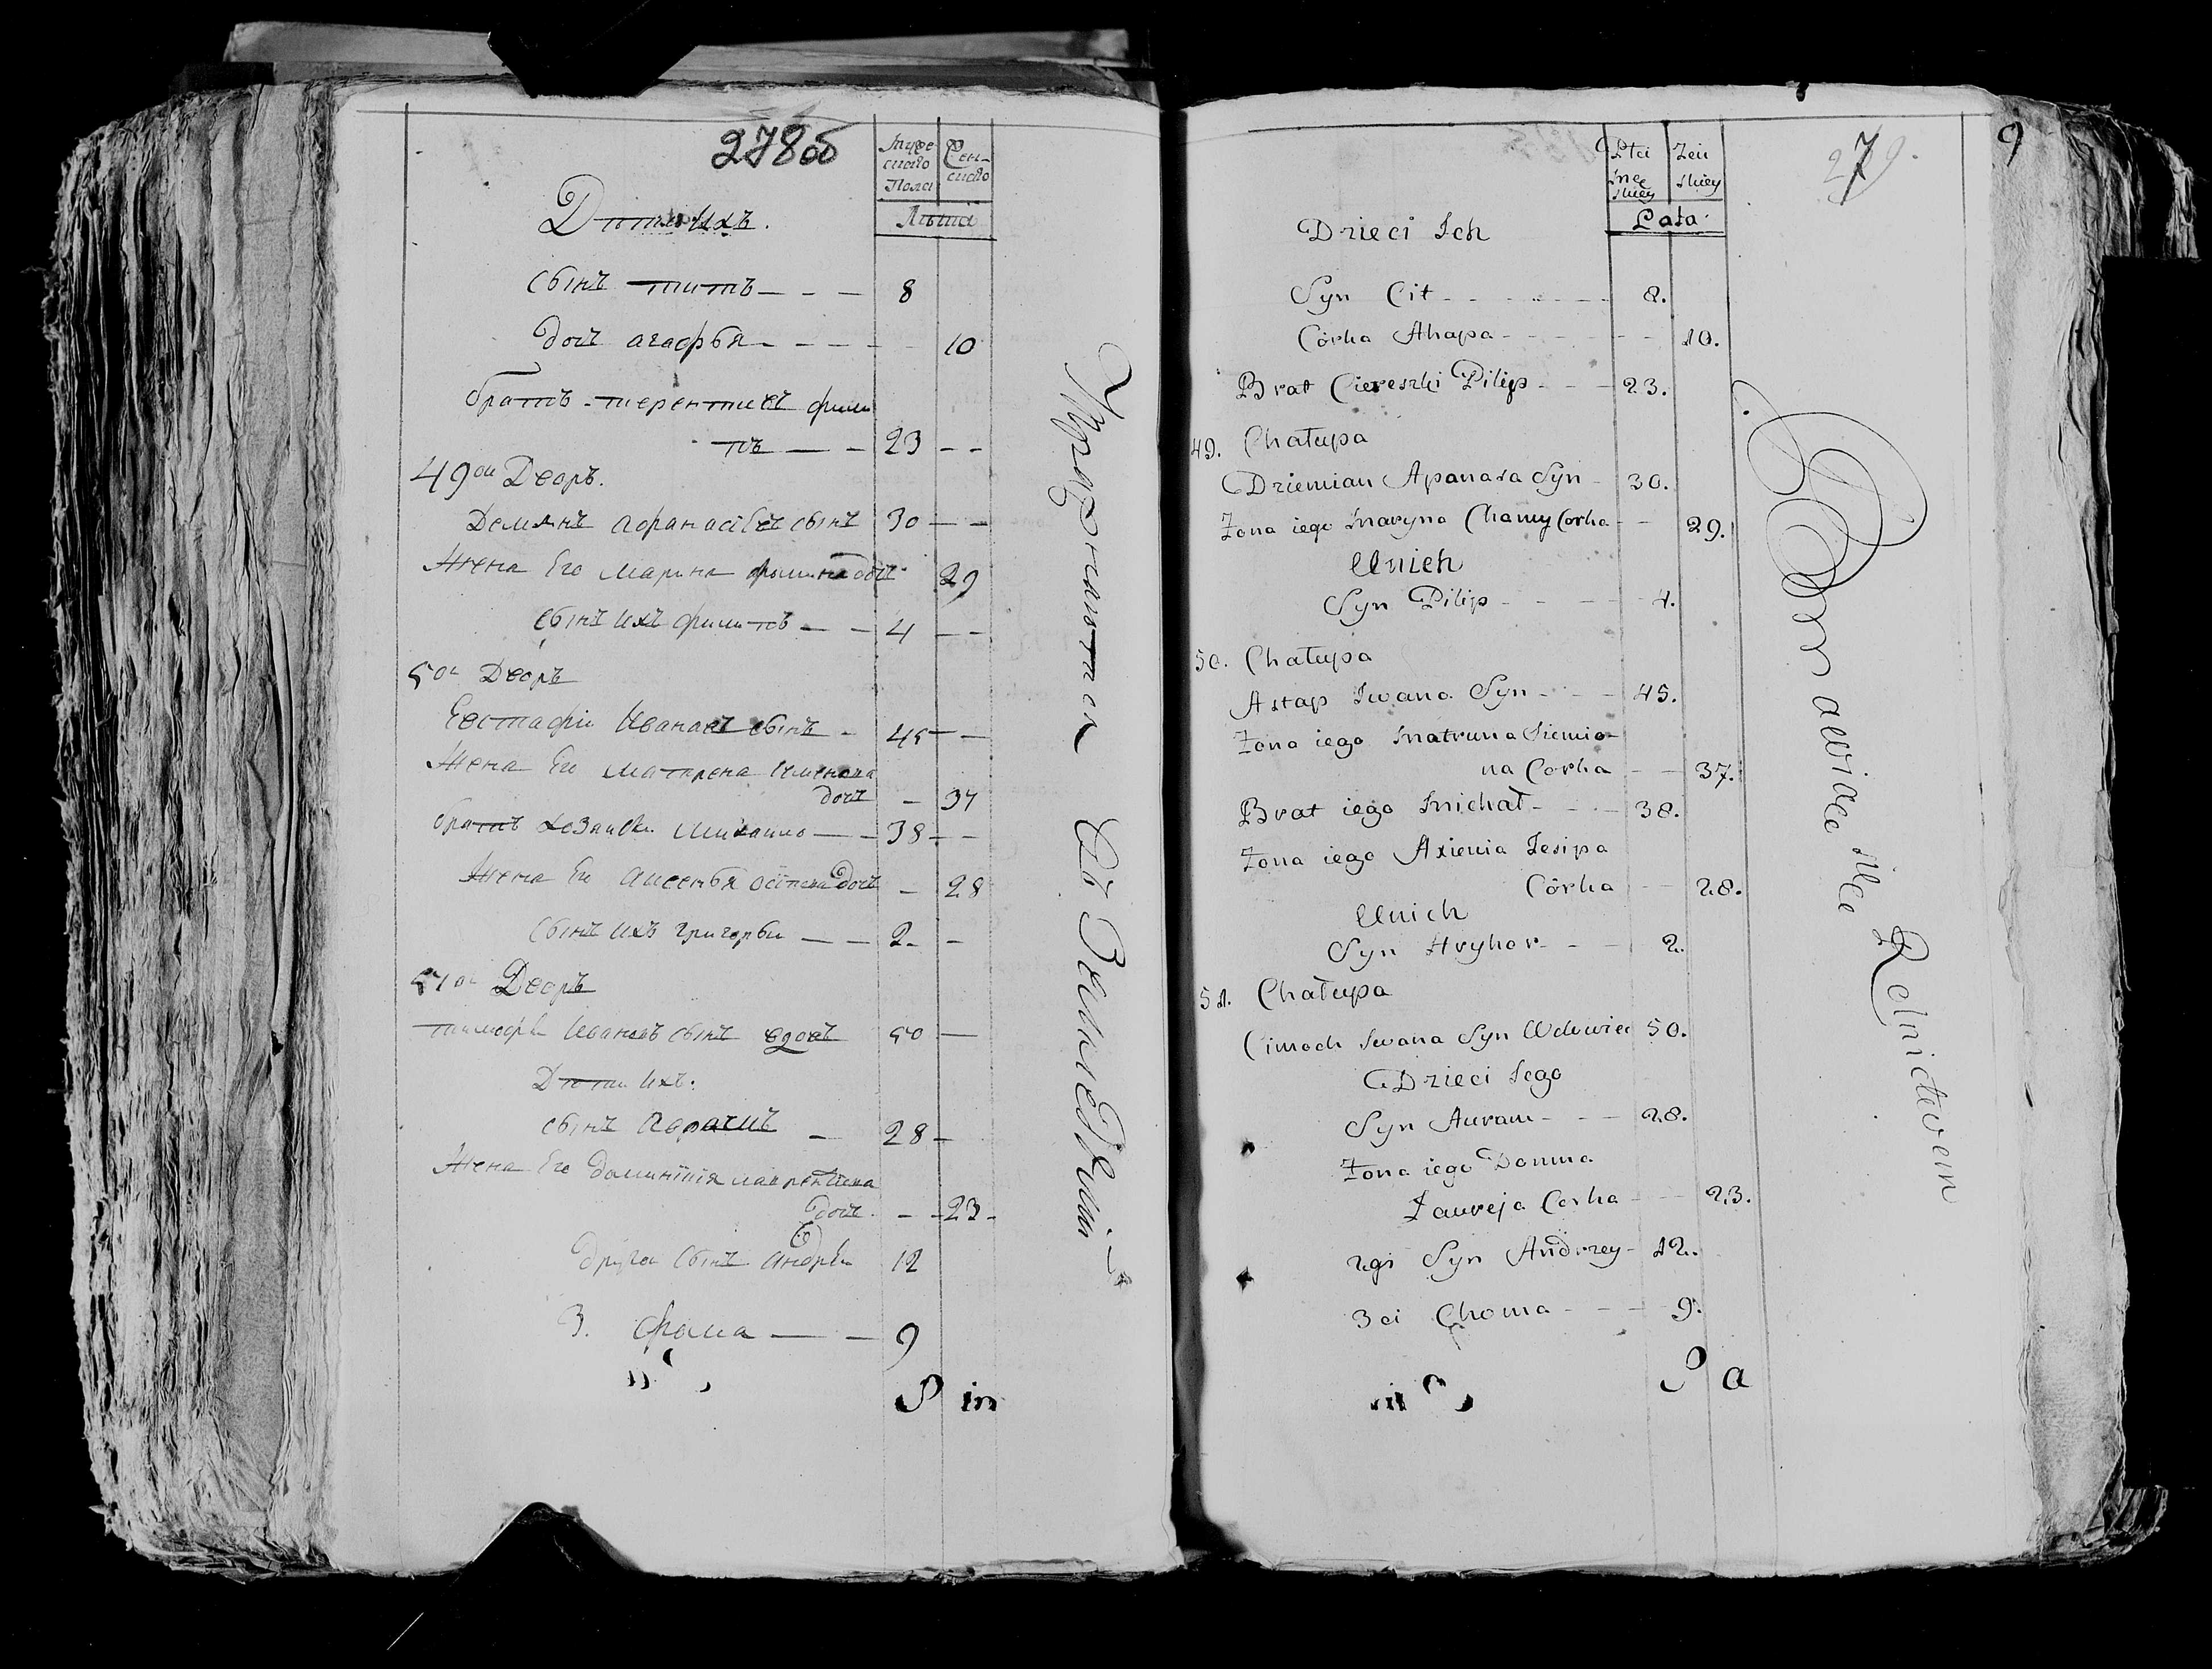 278об
Муже
ского
Пола
Жен-
ского
Лѣта
Дѣти Ихъ.
сынъ титъ 8
дочь агафья 10
братъ терентиевъ фили
пъ 23
49ой Дворъ.
Демянъ афанасьевъ сынъ 30
Жена Его марина фомина дочь 29
сынъ ихъ филипъ 4
50й Дворъ
Евстафiи Ивановъ сынъ 45
Жена Ег матрена семенова
дочь 37
братъ хозяиски михаило 38
Жена Ег аксенья осипова дочь 28
сынъ ихъ григорьи 2
51й Дворъ
тимофѣи Ивановъ сынъ вдовъ 50
Дѣти Ихъ.
сынъ аврамъ 28
Жена Его
дочь 23
другои сынъ андрѣи 12
3. фома 9
Упражняются
Płci
Męs
skiey
Żeń
skiey
Lata
279.
7
9
Dzieci Ich
Syn Cit 8.
Córka Ahapa 10.
Brat Ciereszki Pilip 23.
49. Chałupa
Dziemian Apanasa Syn 30.
Żona iego Maryna Chamy Corka 29.
U nich
Syn Pilip 4.
50. Chałupa
Astap Iwana Syn 45.
Żona iego Matruna Siemio
na Corka 37.
Brat iego Michał 38.
Żona iego Axienia Iesipa
Córka 28.
U nich
Syn Hryhor 2.
51. Chałupa
Cimoch Iwana Syn Wdowiec 50.
Dzieci Iego
Syn Auram 28.
Żona iego Domna
Ławreja Corka 23.
2gi Syn Andrzey 12.
3ci Choma 9.
Rolnictwem